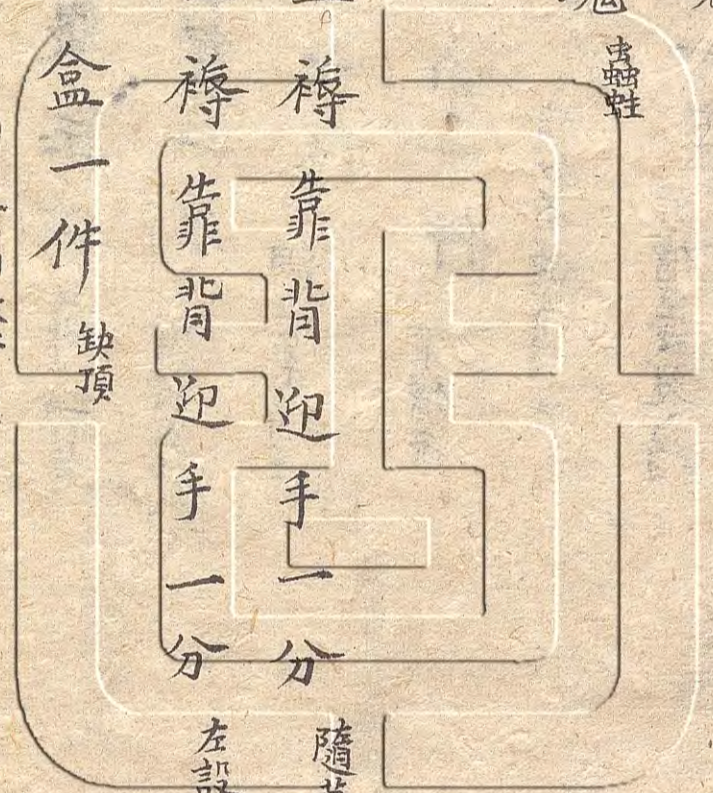 蟲蛀
褥靠背迎手一分 隨
褥靠背迎手一分 左設
盒一件 缺頂